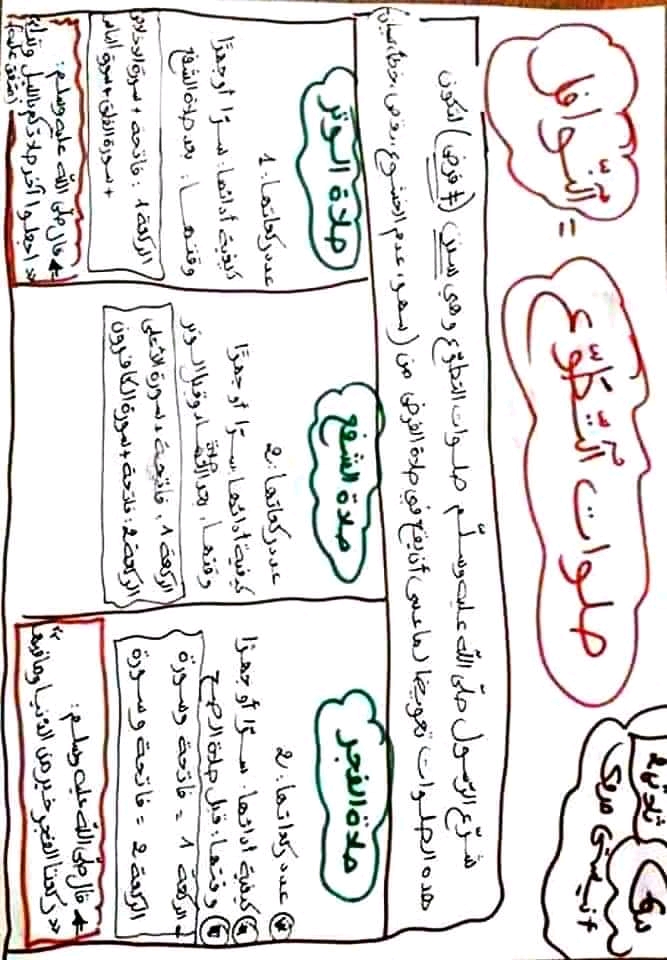 صلوات التّطوّع = النّوافل
شرّع الرّسول صلّى اللّه عليه وسلّم صلوات التطوّع وهي سنن (≠ فرض) لتكون
هذه الصلوات تعويضا لما عسى أن يقع في صلاة الفرض من (سهو، عدم الخشوع، نقص، خطأ، نسيان)
صلاة الفجر
عدد ركعاتها: 2
كيفية أدائها: سرّا أو جهرًا
وقتها: قبل صلاة الصبح
الركعة 1 = فاتحة وسورة
الركعة 2 = فاتحة وسورة
قال صلّى اللّه عليه وسلم:
« ركعتا الفجر خير من الدّنيا وما فيها »
صلاة الشفع
عدد ركعاتها: 2
كيفية أدائها: سرّا أو جهرًا
وقتها: بعد العشاء وقبل الوتر
الركعة 1: فاتحة + سورة الأعلى
الركعة 2: فاتحة + سورة الكافرون
صلاة الوتر
عدد ركعاتها: 1
كيفية أدائها: سرّا أو جهرًا
وقتها: بعد صلاة الشفع
الركعة 1: فاتحة + سورة الإخلاص
+ سورة الفلق + سورة الناس
قال صلّى اللّه عليه وسلم:
« اجعلوا آخر صلاتكم بالليل وترا »
(متفق عليه)